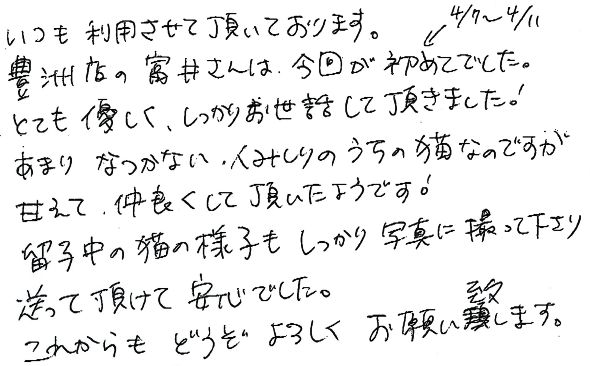 いつも利用させて頂いております。
4/7〜4/11
豊洲店の富井さんは、今回が初めてでした。
とても優しく、しっかりお世話して頂きました!
あまりなつかない、人みしりのうちの猫なのですが
甘えて、仲良くして頂いたようです!
留守中の猫の様子もしっかり写真に撮って下さり
送って頂けて安心でした。
これからもどうぞよろしくお願い致します。